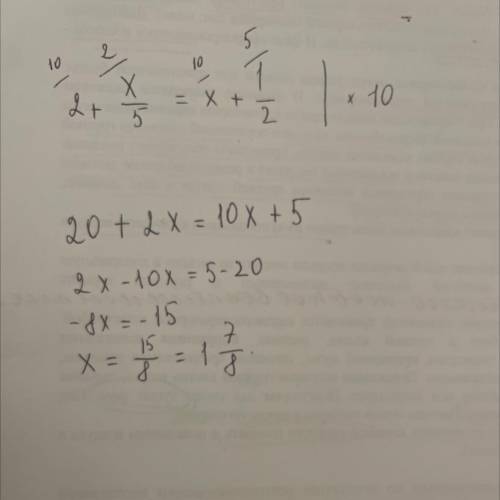 10 2 10 5
2 + x/5 = x + 1/2 | × 10
20 + 2x = 10x + 5
2x - 10x = 5 - 20
-8x = -15
x = 15/8 = 1 7/8.